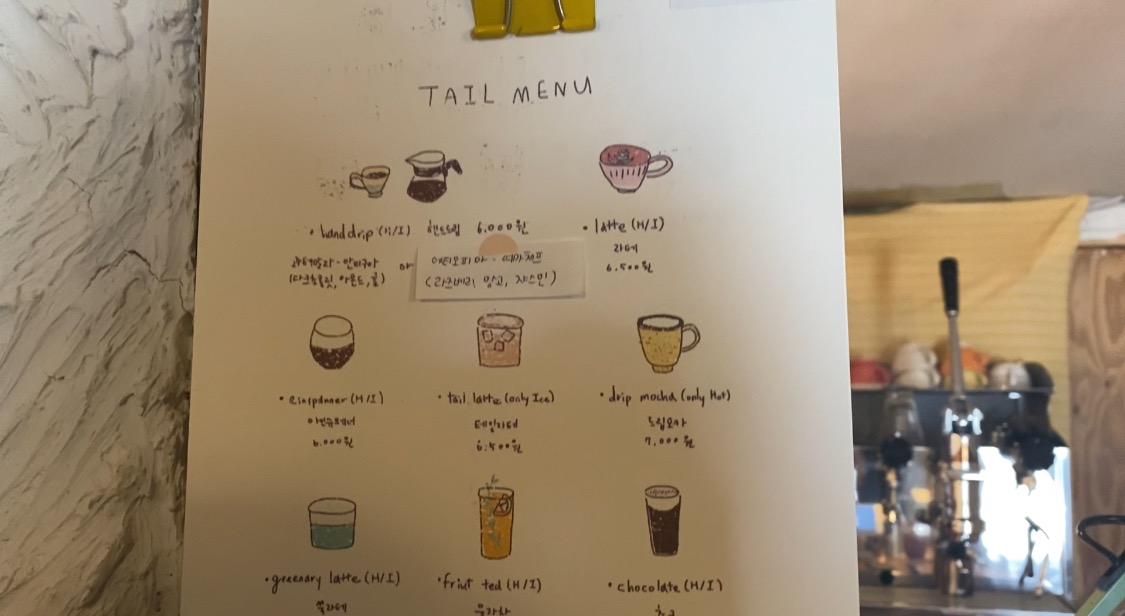 TAIL MENU
• hand drip (H/I) 핸드드립 6,000원
과테말라 - 안티구아
(다크초콜릿, 아몬드, 꿀)
에티오피아 - 예가체프
(라즈베리, 망고, 쟈스민)
• latte (H/I)
라떼
6,500원
• einspanner (H/I)
아인슈페너
6,000원
• tail latte (only Ice)
테일라떼
6,500원
• drip mocha (only Hot)
드립모카
7,000원
• greenary latte (H/I)
쑥라떼
• friut tea (H/I)
• chocolate (H/I)
초코